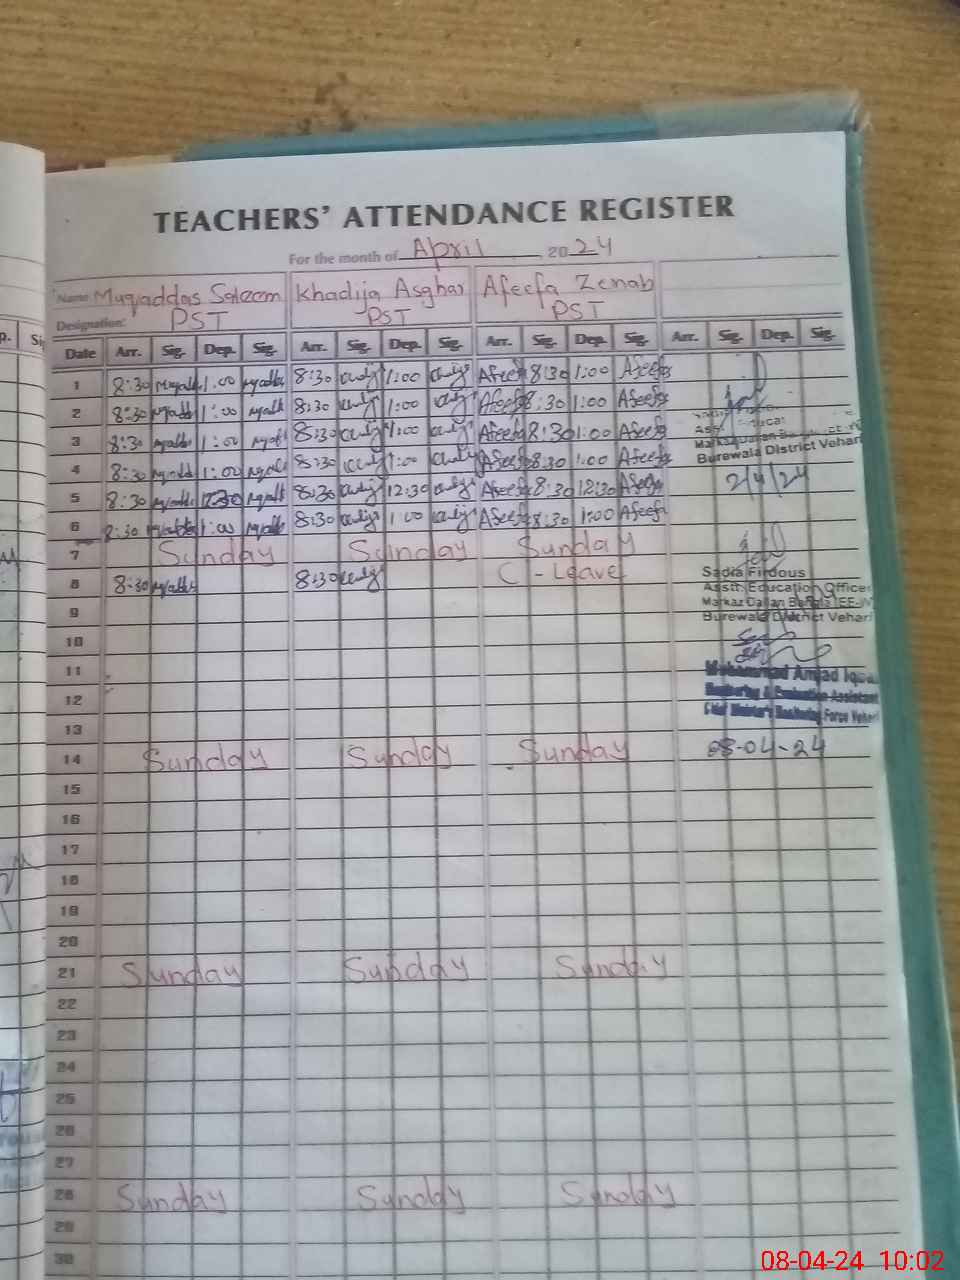 TEACHERS' ATTENDANCE REGISTER
For the month of April 2024
Name Muqaddas Saleem Khadija Asghar Afeefa Zenab
Designation: PST PST PST
Date Arr. Sig. Dep. Sig. Arr. Sig. Dep. Sig. Arr. Sig. Dep. Sig. Arr. Sig. Dep. Sig.
1 8:30 1:00 8:30 1:00 Afeefa 8:30 1:00 Afeefa
2 8:30 1:00 8:30 1:00 Afeefa 8:30 1:00 Afeefa
3 8:30 1:00 8:30 1:00 Afeefa 8:30 1:00 Afeefa
Burewala District Vehari
4 8:30 1:00 8:30 1:00 Afeefa 8:30 1:00 Afeefa
5 8:30 12:30 8:30 12:30 Afeefa 8:30 12:30 Afeefa 2/4/24
6 8:30 1:00 8:30 1:00 Afeefa 8:30 1:00 Afeefa
7 Sunday Sunday Sunday
8 8:30 8:30 C - Leave
Sadia Firdous
Asstt. Education Officer
Burewala District Vehari
9
10
11
Muhammad Amjad Iqbal
12 Monitoring & Evaluation Assistant
Chief Minister's Monitoring Force Vehari
13
14 Sunday Sunday Sunday 08-04-24
15
16
17
18
19
20
21 Sunday Sunday Sunday
22
23
24
25
26
27
28 Sunday Sunday Sunday
29
30
08-04-24 10:02